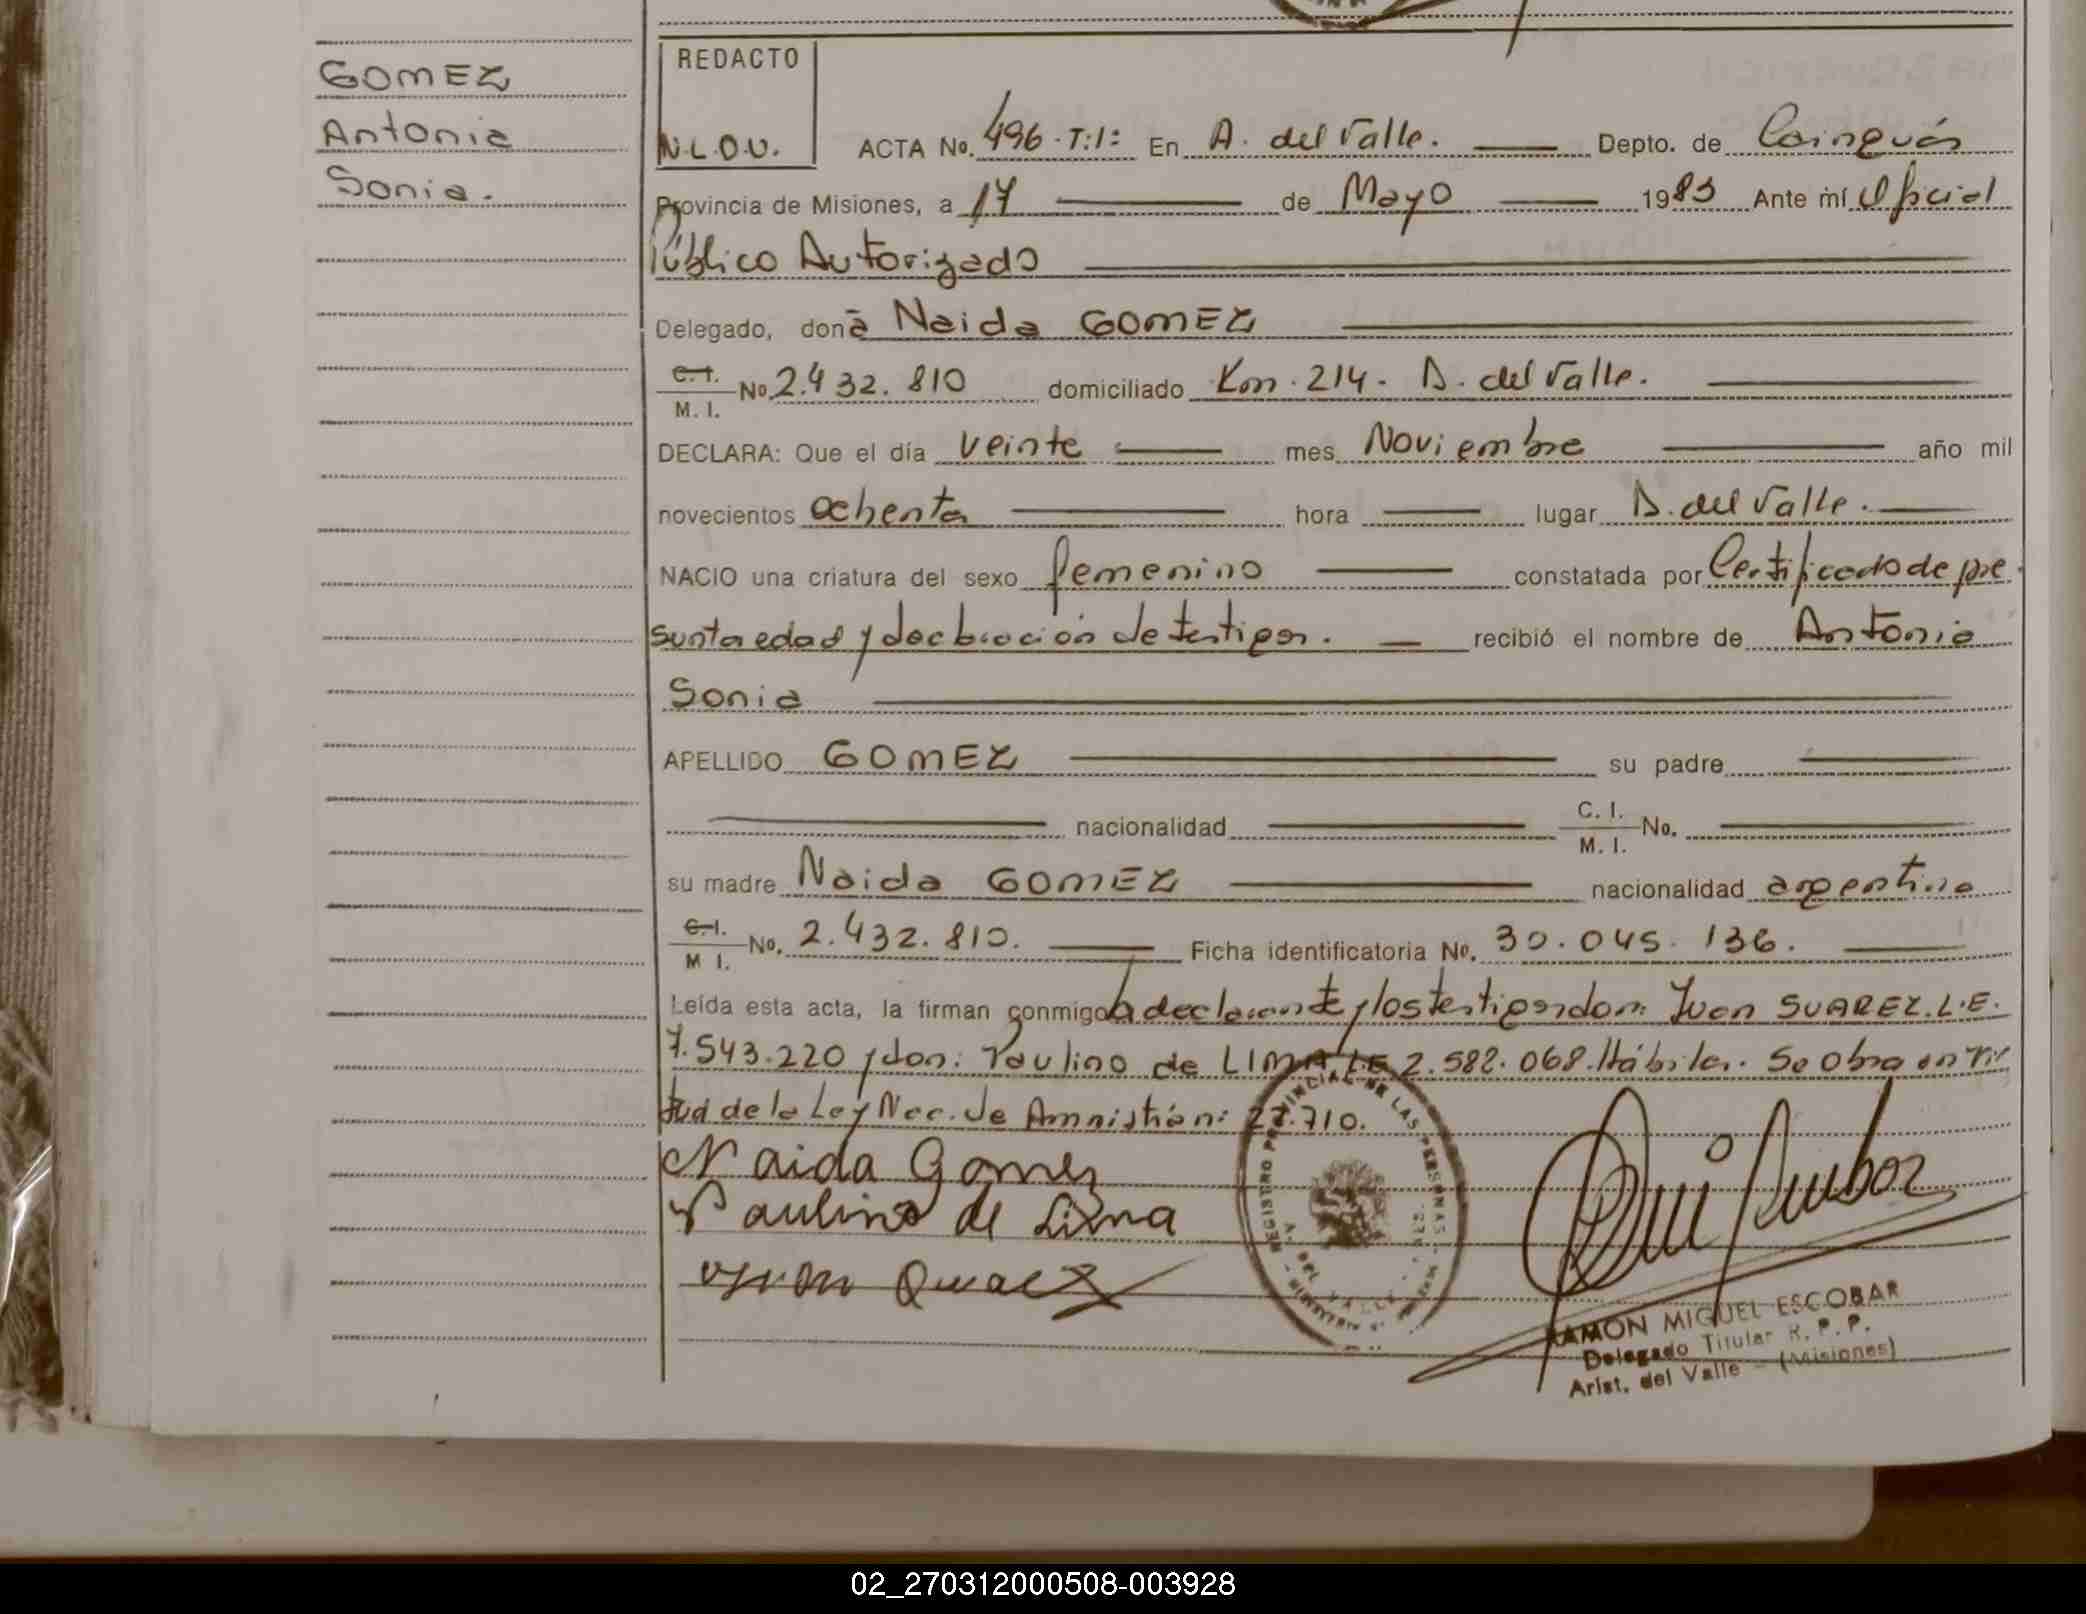 GOMEZ
Antonia
Sonia.
REDACTO
N.L.O.V.
ACTA No. 496.T:1: En A. del Valle. Depto. de Cainguás
Provincia de Misiones, a 17 de Mayo 1983 Ante mí Oficial
Público Autorizado
Delegado, doña Naida GOMEZ
C.I. M.I. No. 2.432.810 domiciliado Km. 214. A. del Valle.
DECLARA: Que el día veinte mes Noviembre año mil
novecientos ochenta hora lugar A. del Valle.
NACIO una criatura del sexo femenino constatada por Certificado de pre
sunta edad y declaración de testigos. recibió el nombre de Antonia
Sonia
APELLIDO GOMEZ su padre
nacionalidad C. I. M. I. No.
su madre Naida GOMEZ nacionalidad argentina
C.I. M I. No. 2.432.810. Ficha identificatoria No. 30.045.136.
Leída esta acta, la firman conmigo la declarante y los testigos don: Juan SUAREZ. L.E.
7.543.220 y don: Paulino de LIMA L.E 2.582.068. Hábiles. Se obra en vir
tud de la Ley Nac. de Amnistía n: 22.710.
Naida Gomez
Paulino de Lima
REGISTRO PROVINCIAL DE LAS PERSONAS
A. DEL VALLE
RAMON MIGUEL ESCOBAR
Delegado Titular R. P. P.
Arist. del Valle - (Misiones)
02_270312000508-003928